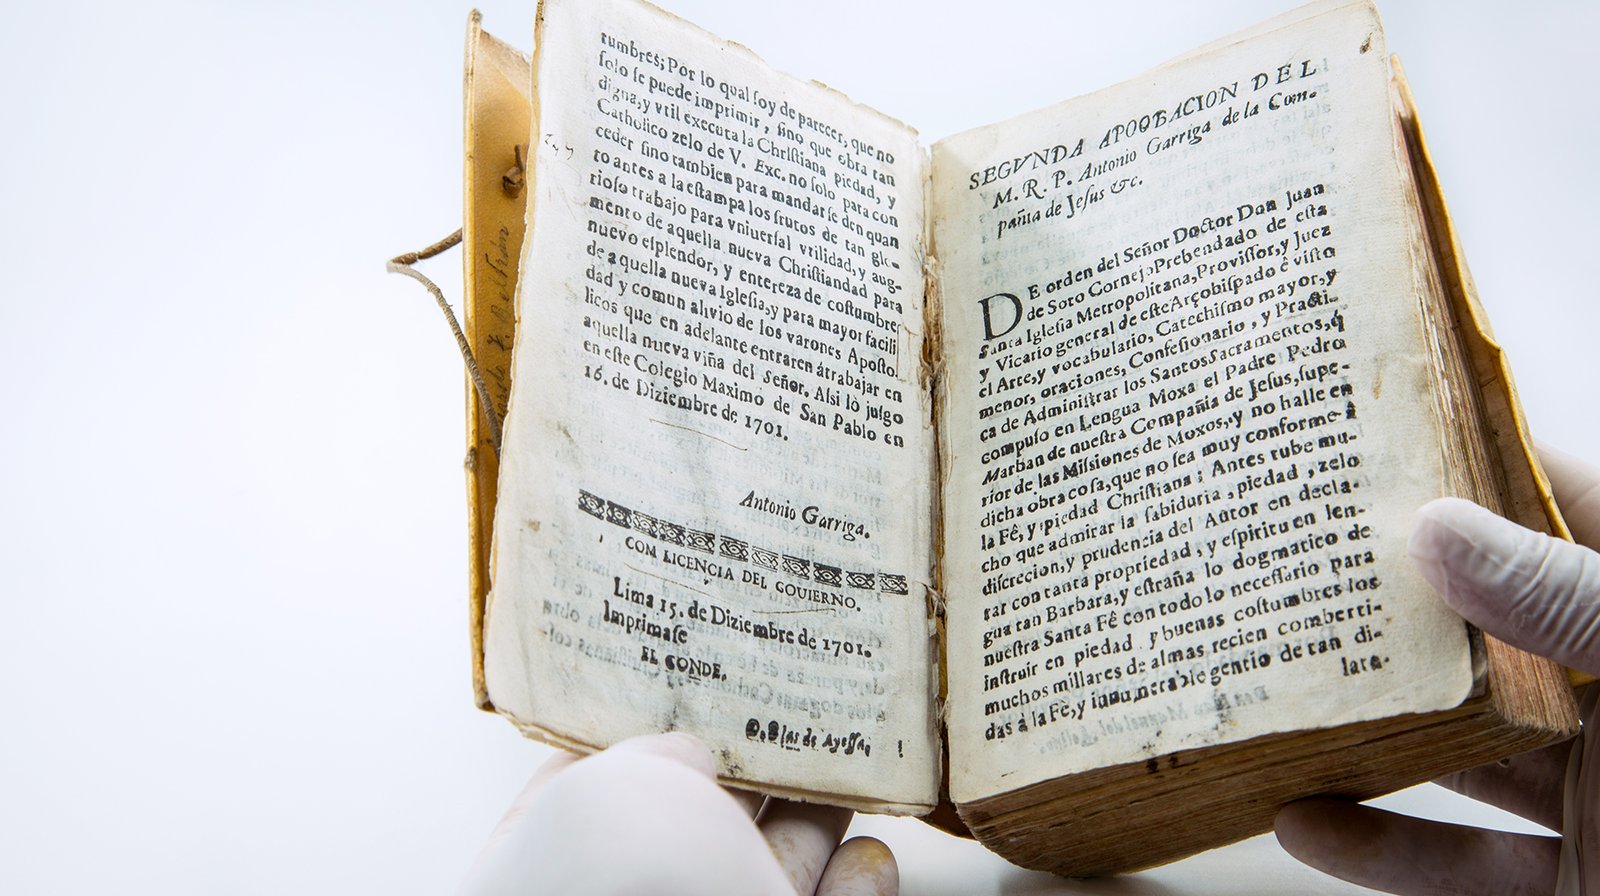 tumbres; Por lo qual ſoy de parecer, que no
ſolo ſe puede imprimir, ſino que obra tan
digna, y vtil executa la Chriſtiana piedad, y
Catholico zelo de V. Exc. no ſolo para con
ceder ſino tambien para mandar ſe den quan
to antes a la eſtampa los frutos de tan glo-
rioſo trabajo para vniuerſal vtilidad, y aug-
mento de aquella nueva Chriſtiandad para
nuevo eſplendor, y entereza de coſtumbres
de aquella nueva Igleſia, y para mayor facili
dad y comun alivio de los varones Apoſto-
licos que en adelante entraren âtrabajar en
aquella nueva viña del Señor. Aſsi lò juſgo
en eſte Colegio Maximo de San Pablo en
16. de Diziembre de 1701.
Antonio Garriga.
COM LICENCIA DEL GOUIERNO.
Lima 15. de Diziembre de 1701.
Imprimaſe
EL CONDE.
D. Blas de Ayeſſa,
SEGVNDA APOQBACION DEL
M. R. P. Antonio Garriga de la Com-
pañia de Jeſus &c.
DE orden del Señor Doctor Don Juan
de Soto Cornejo Prebendado de eſta
Santa Igleſia Metropolitana, Proviſſor, y Juez
y Vicario general de eſte Arçobiſpado è viſto
el Arte, y vocabulario, Catechiſmo mayor, y
menor, oraciones, Confeſionario, y Practi-
ca de Adminiſtrar los Santos Sacramentos, q̃
compuſo en Lengua Moxa el Padre Pedro
Marban de nueſtra Compañia de Jeſus, ſupe-
rior de las Miſsiones de Moxos, y no halle en
dicha obra coſa, que no ſea muy conforme â
la Fê, y piedad Chriſtiana; Antes tube mu-
cho que admirar la ſabiduria, piedad, zelo
diſcrecion, y prudencia del Autor en decla-
rar con tanta propriedad, y eſpiritu en len-
gua tan Barbara, y eſtraña lo dogmatico de
nueſtra Santa Fê con todo lo neceſſario para
inſtruir en piedad y buenas coſtumbres los
muchos millares de almas recien comberti-
das â la Fê, y innumerable gentio de tan di-
lata-